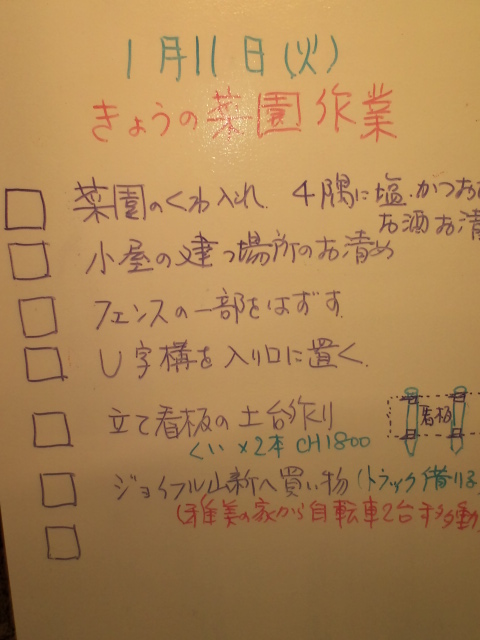 1月11日(火)
きょうの菜園作業
菜園のくわ入れ. 4隅に塩.かつお
お酒 お清
小屋の建つ場所のお清め
フェンスの一部をはずす.
U字構を入り口に置く.
立て看板の土台作り
看板
くい×2本 CH1800
ジョイフル山新へ買い物 (トラック借りる
(雅美の家から自転車2台も移動